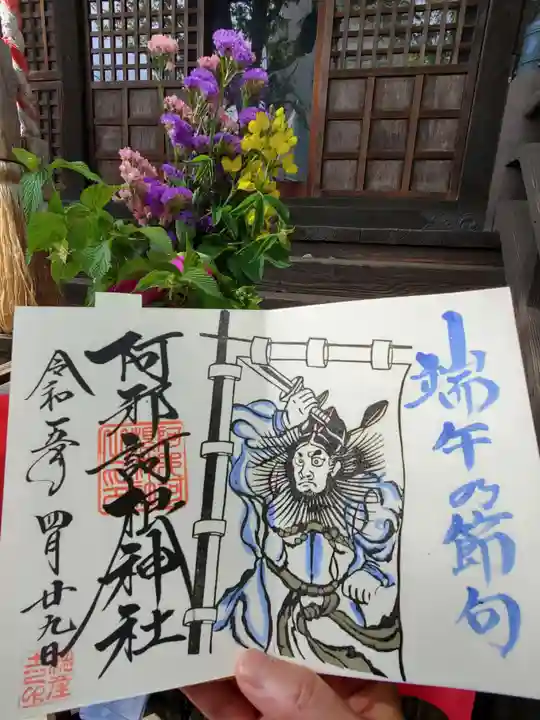 端午の節句
阿邪訶根神社
令和五年 四月廿九日